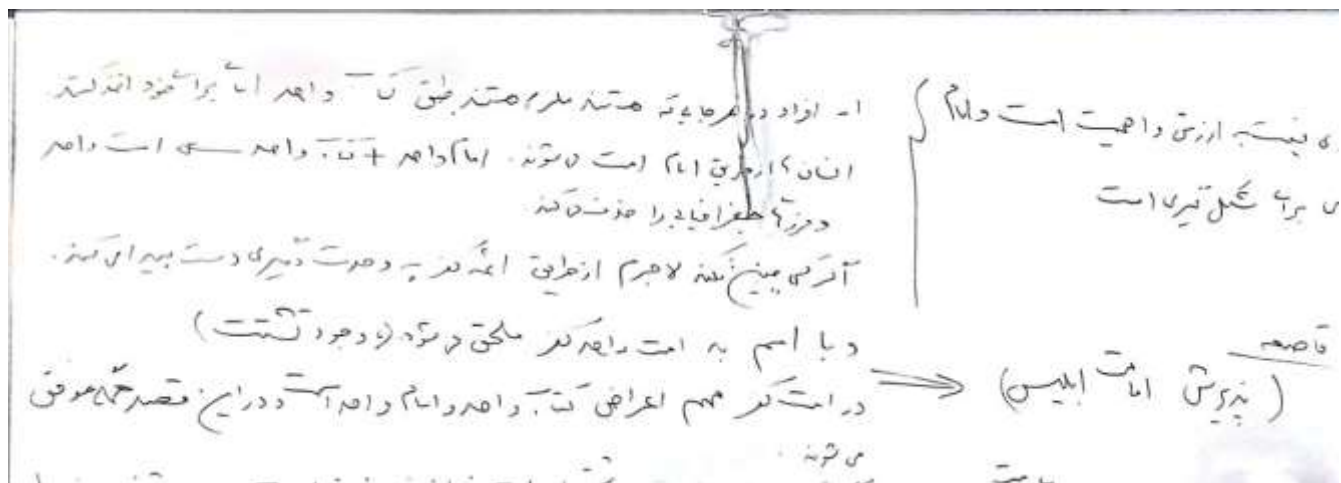 ی نیست به ارزش و اهمیت امت و امام
برای شکل گیری است
قاصعه
(پذیرش امامت ابلیس)
۱- افراد در هر جایی که هستند ملزم هستند طبق کتاب واحد امام برای خود اخذ کنند.
انسان ها از طریق امام امت می شوند. امام واحد + کتاب واحد امت واحد
و مرزهای جغرافیایی را حذف می کند.
اگر کسی چنین نکند لاجرم از طریق ائمه کفر به وحدت دیگری دست پیدا می کند.
و با اسم به امت واحده کفر ملحق می شود (با وجود تشتت)
در امت کفر مهم اعراض کتاب واحد و امام واحد است و در این قصد همگی موفق
می شوند.